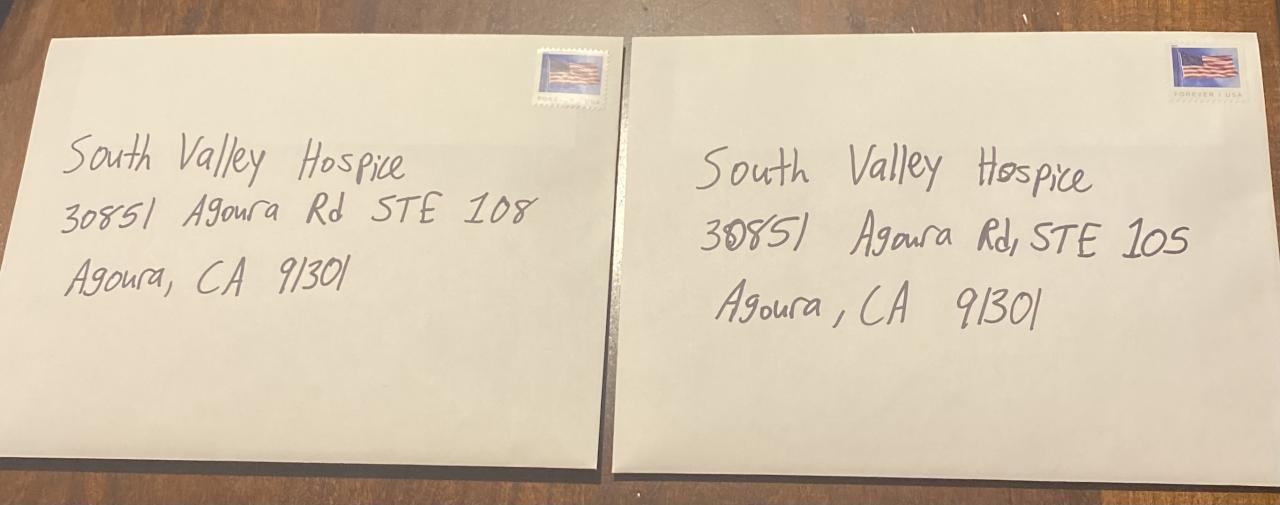 South Valley Hospice
30851 Agoura Rd STE 108
Agoura, CA 91301
FOREVER / USA
South Valley Hospice
30851 Agoura Rd, STE 105
Agoura, CA 91301